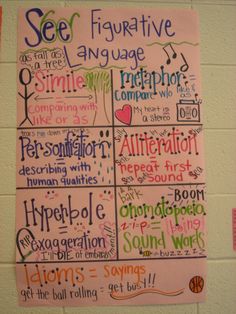 See Figurative
Language
as tall as
a tree
Simile
=
comparing with
like or as
metaphor
=
Compare w/o
like & as
My heart is
a stereo
Personification
=
describing with
human qualities
Alliteration
=
repeat first
Sound
Hyperbole
=
exaggeration
RIP
BOOM
bark
onomatopoeia
=
Sound Words
buzzzz
Idioms = Sayings
get the ball rolling - get bust!!